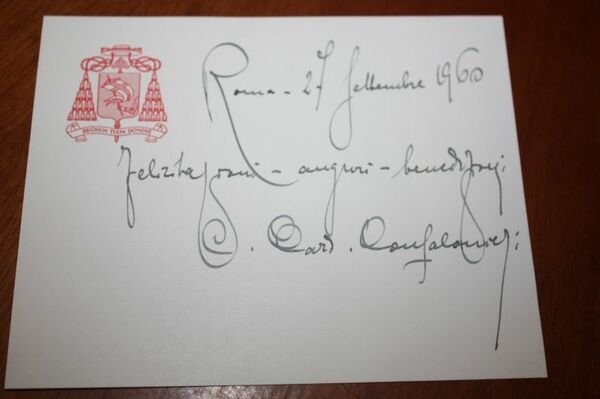 REGNUM TUUM DOMINE
Roma - 27 Settembre 1960
Felicitazioni - auguri - benedizioni.
C. Card. Confalonieri